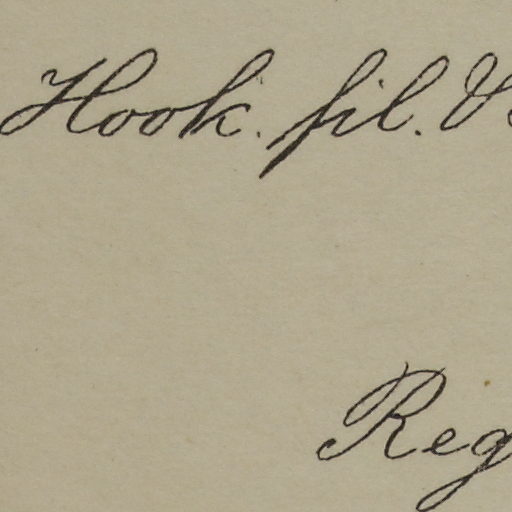 Hook. fil. &
Reg